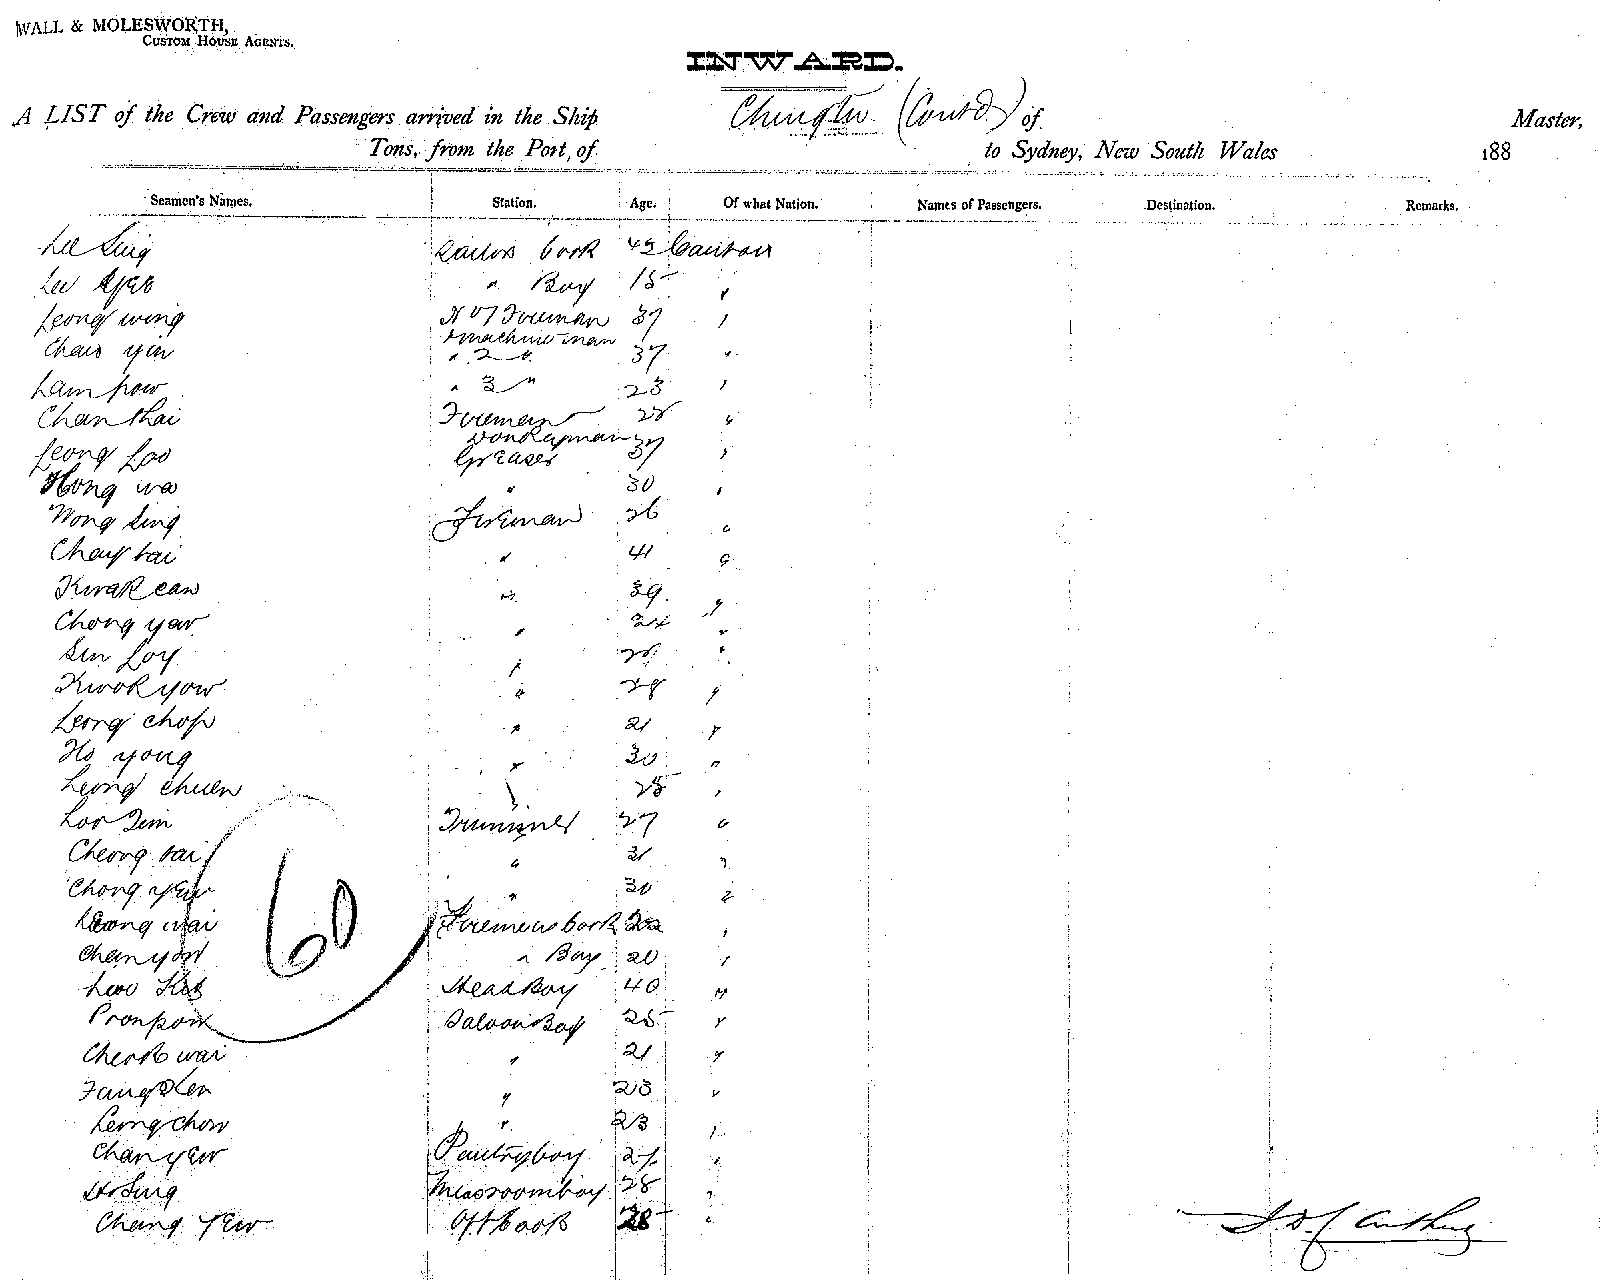 WALL & MOLESWORTH,
CUSTOM HOUSE AGENTS.
INWARD.
A LIST of the Crew and Passengers arrived in the Ship Chingtu (Contd) of Master,
Tons, from the Port of to Sydney, New South Wales 188
Seamen's Names. Station. Age. Of what Nation. Names of Passengers. Destination. Remarks.
Lee Sing Sailors Cook 42 Canton
Lee " Boy 15 "
Leong wing No 1 Fireman 37 "
Chan yin " 2 " 37 "
Lam pow " 3 " 23 "
Chan thai Fireman 28 "
Donkeyman
Leong Loo Greaser 37 "
Hong wa " 30 "
Wong Sing Fireman 26 "
Chay tai " 41 "
Kwak caw " 39 "
Chong yaw " 24 "
Sun Loy " "
Kwok yow " 28 "
Leong chop " 21 "
Ho yong " 30 "
Leong chuen " 28 "
Loo Tim Trimmer 27 "
Cheong tai " 31 "
Chong yew " 30 "
Leong wai Firemens Cook "
Chan yow " Boy 20 "
60
Head Boy 40 "
Pronpow Saloon Boy 25 "
Cheok wai " 21 "
" 23 "
Leong chow " 23 "
Chan yew Pantryboy "
Ho Sing Messroomboy 28 "
Chang Yew Off Cook 28 "